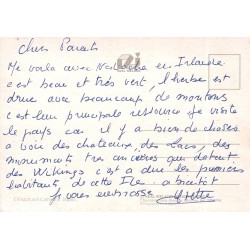 Chers Parents
Me voila avec Nathalie en Irlande
c'est beau et très vert, l'herbe est
drue avec beaucoup de moutons
c'est leur principale ressource je visite
le pays car il y a bien de choses
a voir des chateaux, des Lacs, des
monuments tres anciens qui datent
des Wikings c'est a dire les premiers
habitants de cette Ile. a bientôt
je vous embrasse